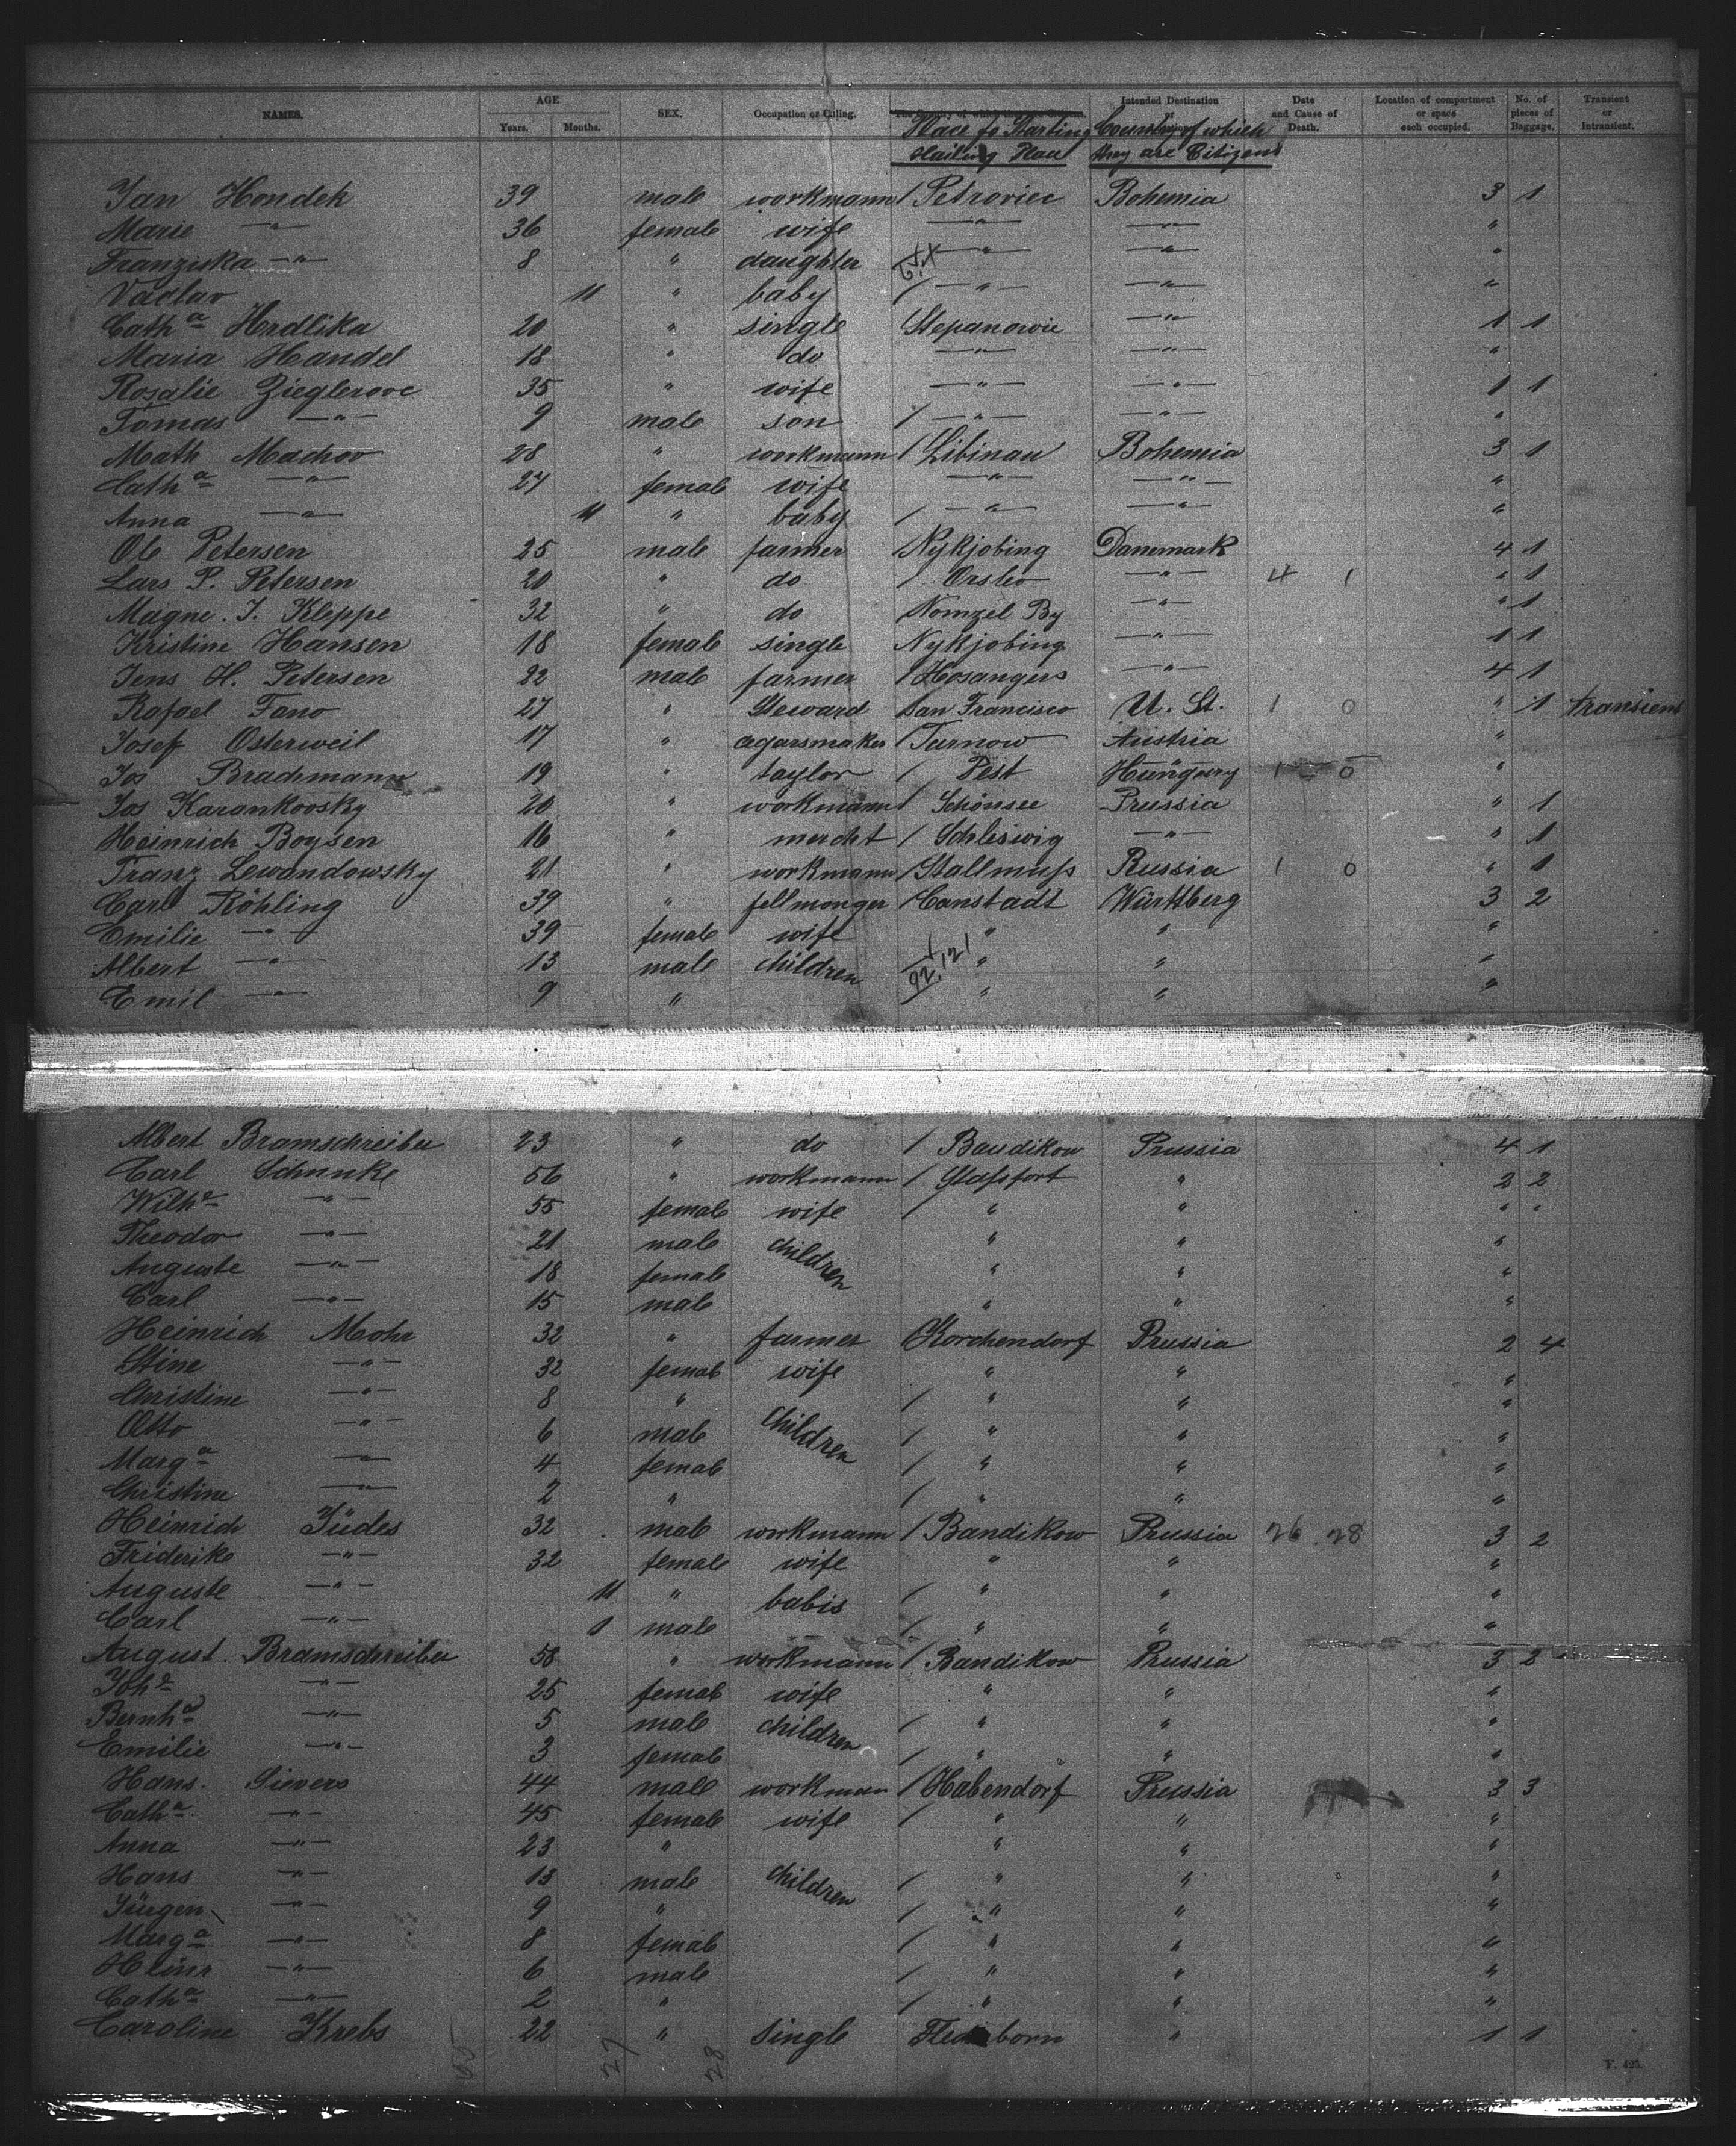 NAMES. AGE. Years. Months. SEX. Occupation or Calling. Intended Destination or Date and Cause of Death. Location of compartment or space each occupied. No. of pieces of Baggage. Transient or Intransient.
Place to Starting Country of which
they are Citizens
Jan Hondek 39 male workmann / Petroviec Bohemia 3 1
Marie —"— 36 female wife —"— —"— "
Franziska —"— 8 " daughter —"— —"— "
Vaclav 11 " baby / —"— —"— "
Cathª Hrdlika 20 " single Stepanowic —"— 1 1
Maria Handel 18 " do —"— —"— "
Rosalie Zieglerove 35 " wife —"— —"— 1 1
Tomas —"— 9 male son / —"— —"— "
Math Machov 28 " workmann / Libinau Bohemia 3 1
Cathª —"— 27 female wife —"— —"— "
Anna —"— 11 " baby / —"— —"— "
Ole Petersen 25 male farmer Nykjobing Danemark 4 1
Lars P. Petersen 20 " do / Orslev —"— 4 1 " 1
Magne. J. Kleppe 32 " do Nomzel By —"— " 1
Kristine Hansen 18 female single Nykjobing —"— 1 1
Jens H. Petersen 22 male farmer / Hosangers —"— 4 1
Rafael Fano 27 " Steward San Francisco U. St. 1 0 " 1 transient
Josef Osterweil 17 " cigarsmaker / Tarnow Austria "
Jos Brachmann 19 " taylor / Pest Hungary 1 0 "
Jos Karankovsky 20 " workmann / Schönsee Prussia " 1
Heinrich Boysen 16 " mercht / Schleswig —"— " 1
Franz Lewandowsky 21 " workmann / Stallmuss Russia 1 0 " 1
Carl Röhling 39 " fellmonger / Canstadt Württberg 3 2
Emilie —"— 39 female wife " " "
Albert —"— 13 male children " " "
Emil —"— 9 " " " "
Albert Bramschreiber 23 " do / Baudikow Prussia 4 1
Carl Schunke 56 " workmann / Stassfort " 2 2
Wilhe —"— 55 female wife / " " " "
Theodor —"— 21 male children " " "
Auguste —"— 18 female " " "
Carl —"— 15 male " " "
Heinrich Mohr 32 " farmer Korchendorf Prussia 2 4
Stine —"— 32 female wife " " "
Christine —"— 8 " / " " "
Otto —"— 6 male children / " " "
Margª —"— 4 female / " " "
Christine —"— 2 " / " " "
Heinrich Jüdes 32 male workmann / Bandikow Prussia 26 28 3 2
Friderike —"— 32 female wife " " "
Auguste —"— 11 " babis / " " "
Carl —"— 1 male / " " "
August. Bramschreiber 58 " workmann / Bandikow Prussia 3 2
Johe —"— 25 female wife " " "
Bernhd —"— 5 male children / " " "
Emilie —"— 3 female / " " "
Hans. Sievers 44 male workman / Habendorf Prussia 3 3
Cathª —"— 45 female wife / " " "
Anna —"— 23 " " " "
Hans —"— 13 male children / " " "
Jürgen —"— 9 " / " " "
Margª —"— 8 female / " " "
Heinr —"— 6 male / " " "
Cathª —"— 2 " / " " "
Caroline Krebs 22 " single " 1 1
27 28
F. 425.